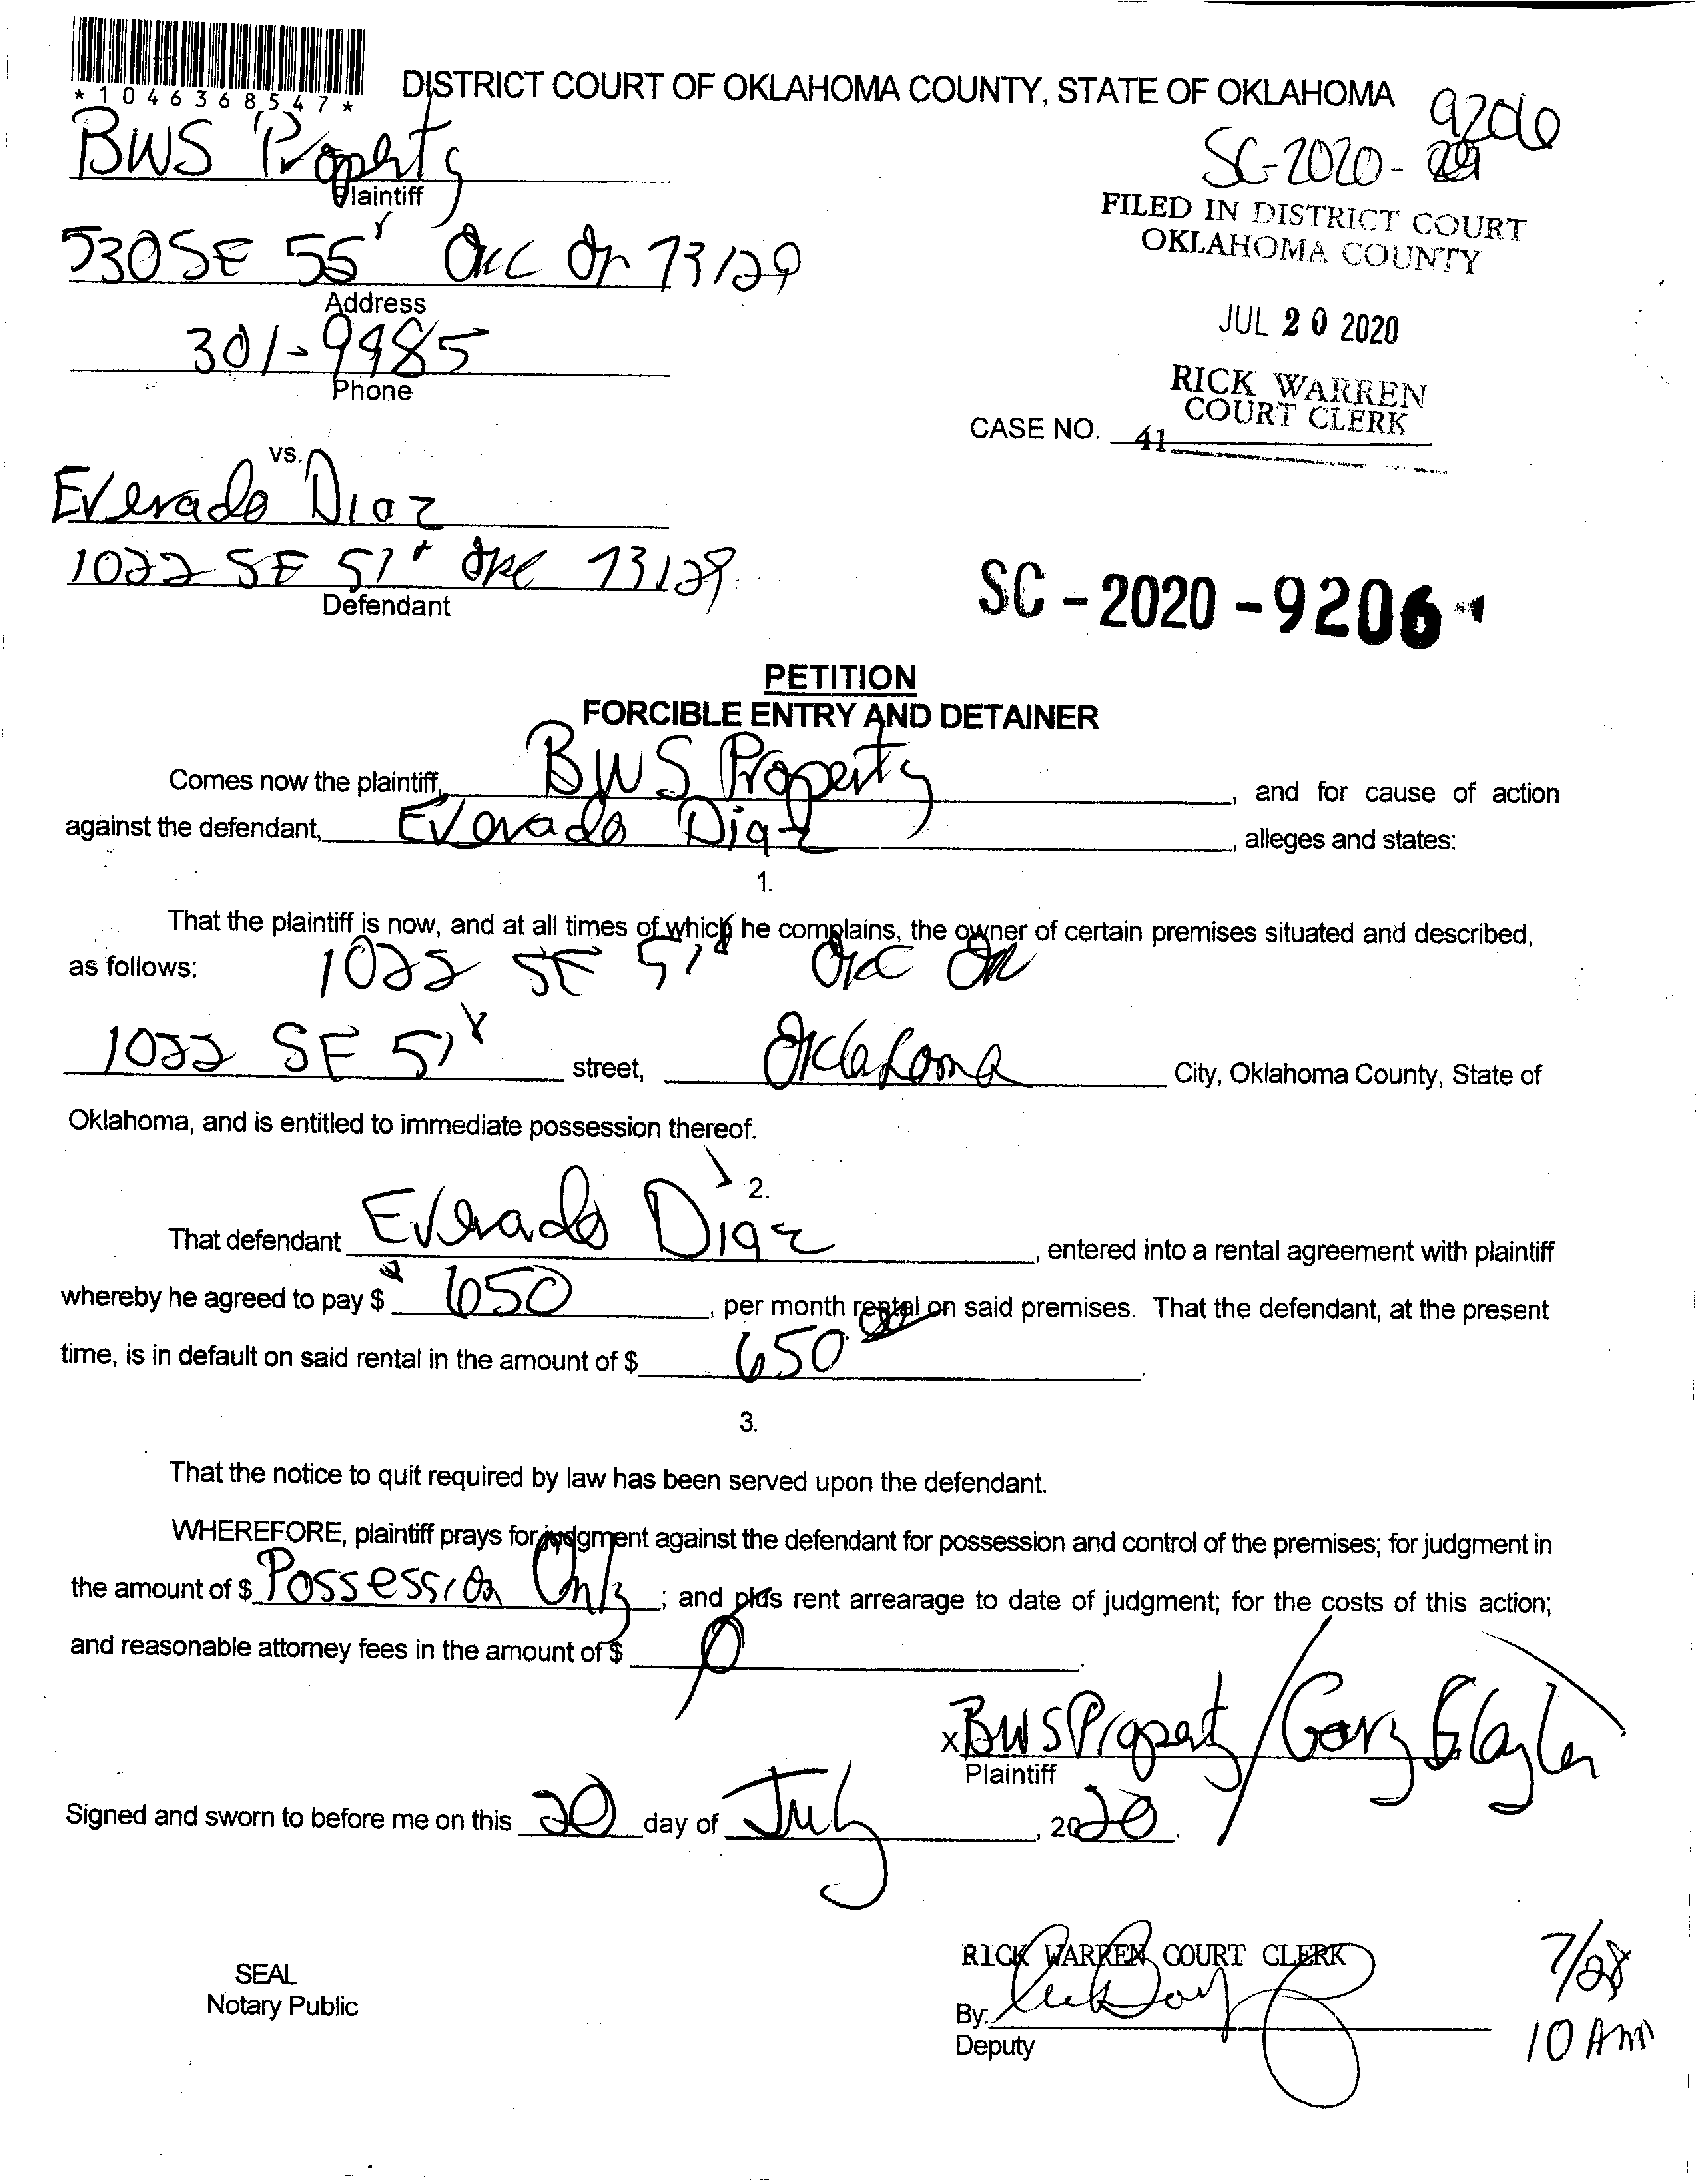 *1046368547*
DISTRICT COURT OF OKLAHOMA COUNTY, STATE OF OKLAHOMA
9206
BWS Property
SC-2020-
Plaintiff
FILED IN DISTRICT COURT
OKLAHOMA COUNTY
530 SE 55 OKC OK 73129
Address
JUL 20 2020
301-9985
Phone
RICK WARREN
COURT CLERK
CASE NO. 41
vs.
Everado Diaz
1022 SE 57 OKC 73129
Defendant
SC-2020-9206
PETITION
FORCIBLE ENTRY AND DETAINER
Comes now the plaintiff, BWS Property, and for cause of action
against the defendant, Everado Diaz, alleges and states:
1.
That the plaintiff is now, and at all times of which he complains, the owner of certain premises situated and described,
as follows: 1022 SE 57 OKC OK
1022 SE 57 street, Oklahoma City, Oklahoma County, State of
Oklahoma, and is entitled to immediate possession thereof.
2.
That defendant Everado Diaz, entered into a rental agreement with plaintiff
whereby he agreed to pay $ 650, per month rental on said premises. That the defendant, at the present
time, is in default on said rental in the amount of $ 650.
3.
That the notice to quit required by law has been served upon the defendant.
WHEREFORE, plaintiff prays for judgment against the defendant for possession and control of the premises; for judgment in
the amount of $ Possession Only; and plus rent arrearage to date of judgment; for the costs of this action;
and reasonable attorney fees in the amount of $ 0.
x BWS Property / Gary
Plaintiff
Signed and sworn to before me on this 20 day of July, 2020.
RICK WARREN COURT CLERK
7/28
SEAL
Notary Public
By:
Deputy
10 AM